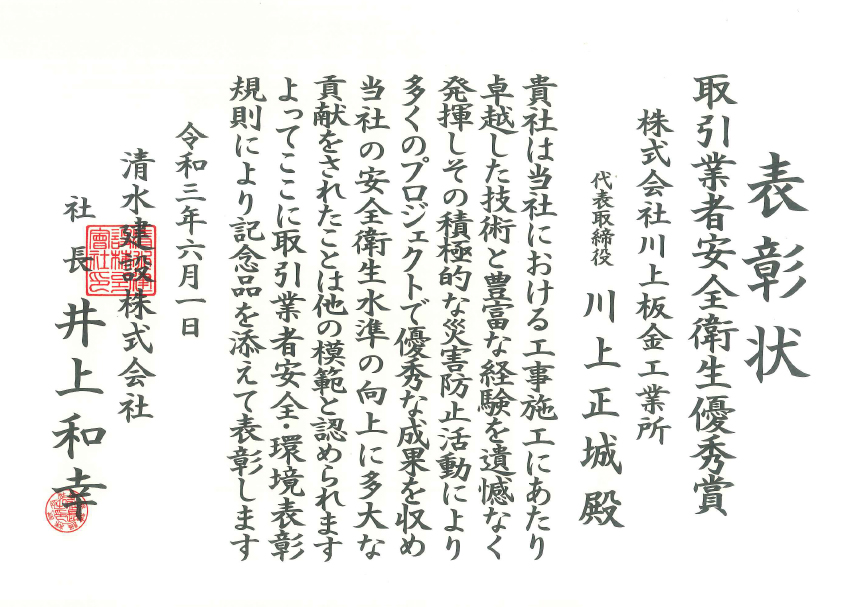 表彰状
取引業者安全衛生優秀賞
株式会社川上板金工業所
代表取締役 川上正城殿
貴社は当社における工事施工にあたり
卓越した技術と豊富な経験を遺憾なく
発揮しその積極的な災害防止活動により
多くのプロジェクトで優秀な成果を収め
当社の安全衛生水準の向上に多大な
貢献をされたことは他の模範と認められます
よってここに取引業者安全・環境表彰
規則により記念品を添えて表彰します
令和三年六月一日
清水建設株式会社
社長 井上和幸